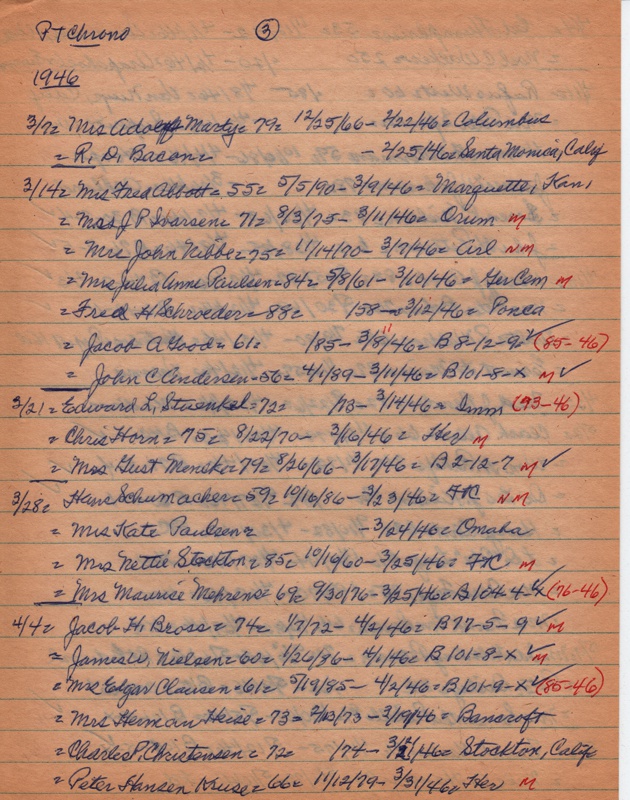 PT Chrono ③
1946
3/7 = Mrs Adolph Marty = 79 = 12/25/66 - 2/22/46 = Columbus
= R. D. Bacon = - 2/25/46 = Santa Monica, Calif
3/14 = Mrs Fred Abbott = 55 = 5/5/90 - 3/9/46 = Marquette, Kans
= Mrs J P Ivarsen = 71 = 8/3/75 - 3/11/46 = Orum M
= Mrs John Nibbe = 75 = 11/14/70 - 3/7/46 = Arl NM
= Mrs Julia Anne Paulsen = 84 = 5/8/61 - 3/10/46 = Ger Cem M
= Fred H Schroeder = 88 = 158 - 3/12/46 = Ponca
= Jacob A Good = 61 = 185 - 3/8/46 = B 8-12-9 ✓ (85-46)
11
= John C Andersen = 56 = 4/1/89 - 3/11/46 = B 101-8-X M ✓
3/21 = Edward L, Stuenkel = 72 = 173 - 3/14/46 = Imm (93-46)
= Chris Horn = 75 = 8/22/70 - 3/16/46 = Her M
= Mrs Gust Menck = 79 = 8/26/66 - 3/17/46 = B 2-12-7 M ✓
3/28 = Hans Schumacher = 59 = 10/16/86 - 3/23/46 = FC NM
= Mrs Kate Paulsen = - 3/24/46 = Omaha
= Mrs Nettie Stockton = 85 = 10/19/60 - 3/25/46 = FC M
= Mrs Maurice Mehrens = 69 = 9/30/76 - 3/25/46 = B 104-4-X ✓ (76-46)
4/4 = Jacob H. Bross = 74 = 1/7/72 - 4/2/46 = B 77-5-9 ✓ M
= James W, Nielsen = 60 = 1/26/86 - 4/1/46 = B 101-8-X ✓ M
= Mrs Edgar Clausen = 61 = 5/19/85 - 4/2/46 = B 101-9-X ✓ (85-46)
= Mrs Herman Heise = 73 = 2/13/73 - 3/19/46 = Bancroft
= Charles P. Christensen = 72 = 174 - /46 = Stockton, Calif
= Peter Hansen Kruse = 66 = 11/12/79 - 3/31/46 = Her M